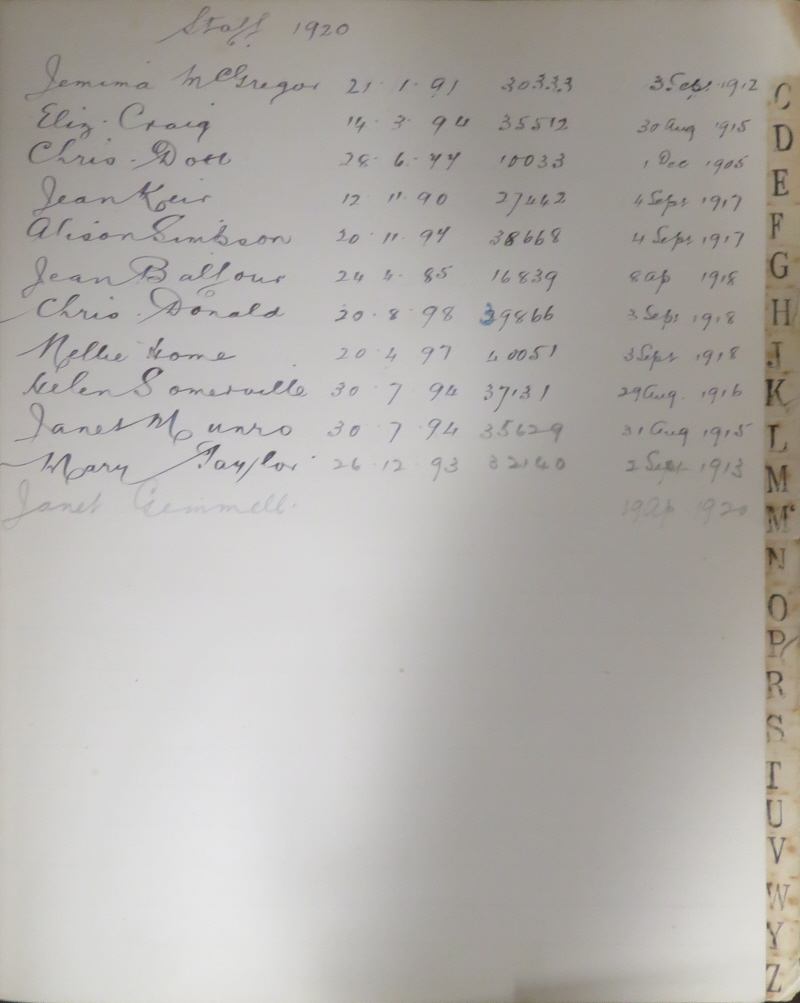 Staff 1920
Jemima McGregor 21 · 1 · 91 30333 3 Sept 1912
Eliz. Craig 14 · 3 · 94 35512 30 Aug 1915
Chris. 28 · 6 · 77 10033 1 Dec 1905
Jean Keir 12 · 11 · 90 27442 4 Sept 1917
Alison Simpson 20 · 11 · 97 38668 4 Sept 1917
Jean Balfour 24 4 · 85 16839 8 ap 1918
Chris. Donald 20 · 8 · 98 39866 3 Sept 1918
Nellie Home 20 · 4 97 40051 3 Sept 1918
Helen Somerville 30 · 7 · 94 37131 29 Aug. 1916
Janet Munro 30 · 7 · 94 35629 31 Aug 1915
Mary Taylor 26 · 12 · 93 32140 2 Sept 1913
Janet Gemmell. 19 ap 1920
C
D
E
F
G
H
J
K
L
M
Mc
N
O
P
R
S
T
U
V
W
Y
Z